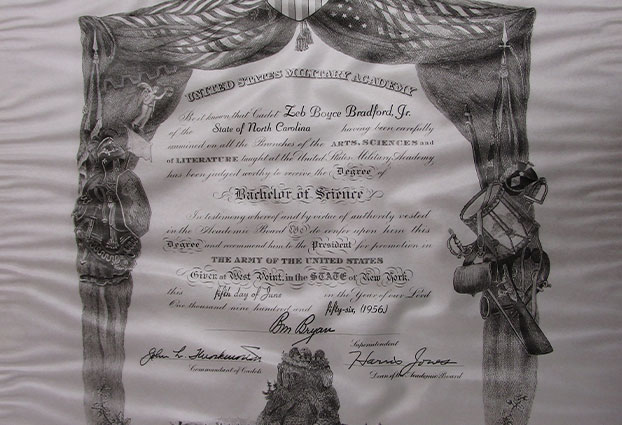 UNITED STATES MILITARY ACADEMY
Be it known that Cadet Zeb Boyce Bradford, Jr.
of the State of North Carolina having been carefully
examined on all the Branches of the ARTS, SCIENCES and
of LITERATURE taught at the United States Military Academy
has been judged worthy to receive the Degree of
Bachelor of Science
In testimony whereof and by virtue of authority vested
in the Academic Board We do confer upon him this
Degree and recommend him to the President for promotion in
THE ARMY OF THE UNITED STATES
Given at West Point, in the STATE of New York
this fifth day of June in the Year of our Lord
One thousand nine hundred and fifty-six, (1956)
BM Bryan
Superintendent
John L. Harris Jones
Commandant of Cadets Dean of the Academic Board